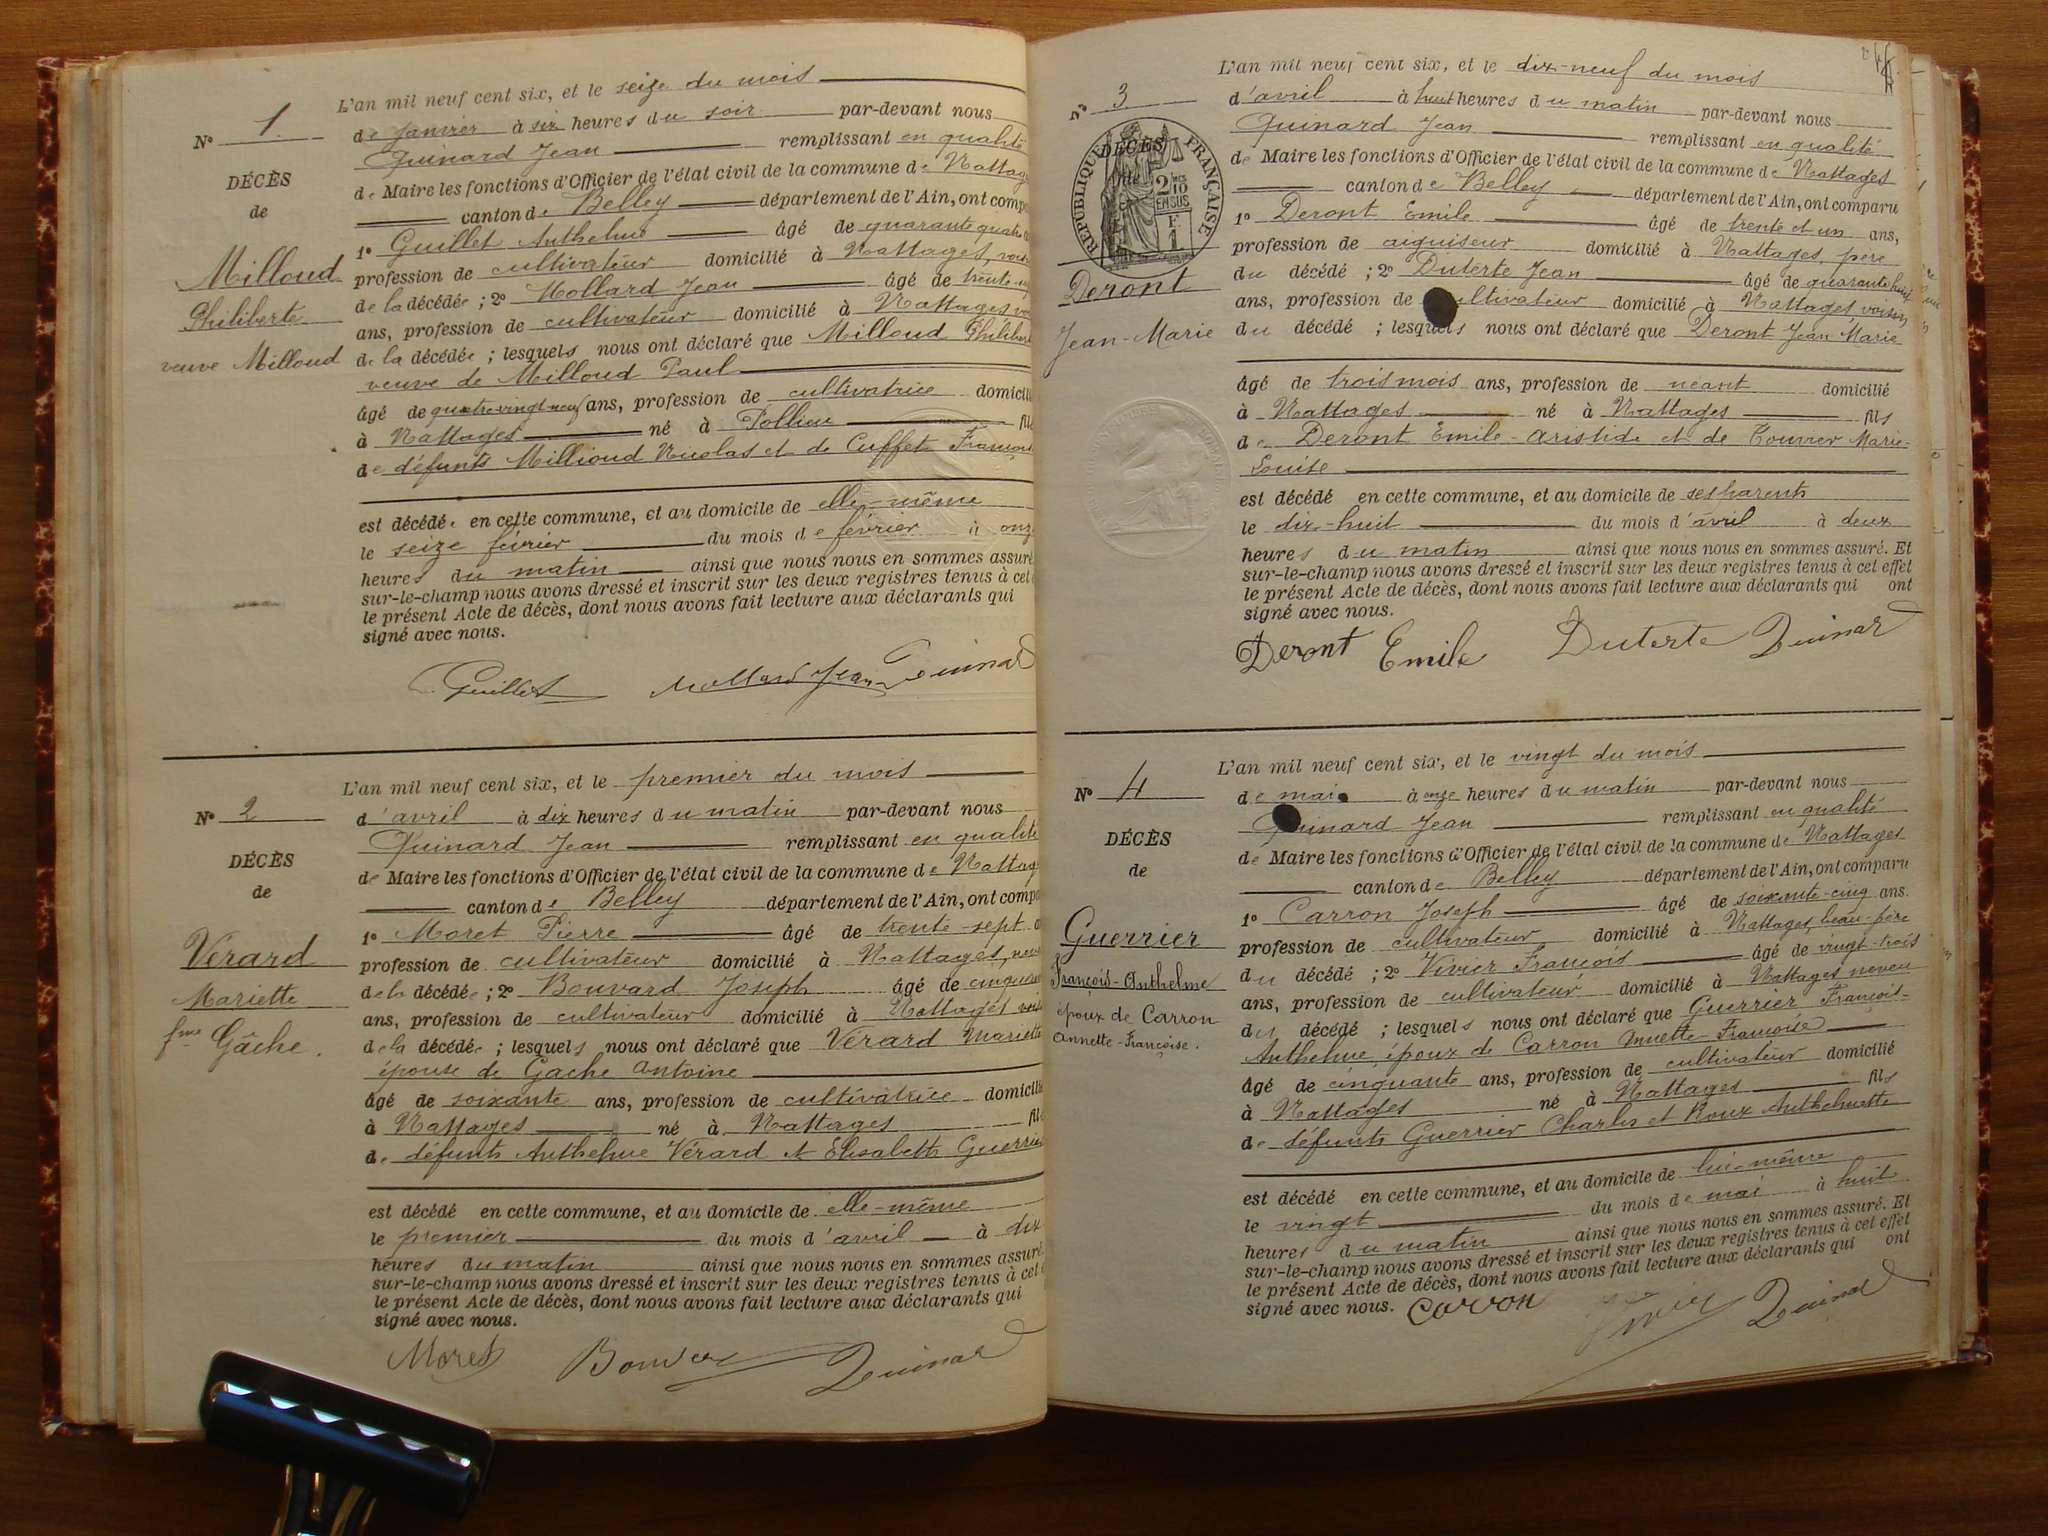 L'an mil neuf cent six, et le seize du mois
N° 1.
de janvier à six heures du soir par-devant nous
Quinard Jean remplissant en qualité
DÉCÈS
de Maire les fonctions d'Officier de l'état civil de la commune de Nattages
de
canton de Belley département de l'Ain, ont compa
1° Guillet Anthelme âgé de quarante quatre
Milloud
profession de cultivateur domicilié à Nattages, voisin
de la décédée ; 2° Mollard Jean âgé de trente
Philiberte
ans, profession de cultivateur domicilié à Nattages
veuve Milloud
de la décédée ; lesquels nous ont déclaré que Milloud Philiberte
veuve de Milloud Paul
âgé de quatre-vingt-neuf ans, profession de cultivatrice domicilié
à Nattages né à Pollieu fils
de défunts Millioud Nicolas et de Cuffet Françoise
est décédée en cette commune, et au domicile de elle-même
le seize février du mois de février à onze
heures du matin ainsi que nous nous en sommes assuré
sur-le-champ nous avons dressé et inscrit sur les deux registres tenus à cet
le présent Acte de décès, dont nous avons fait lecture aux déclarants qui
signé avec nous.
Guillet Mollard Jean Quinard
L'an mil neuf cent six, et le premier du mois
N° 2
d'avril à dix heures du matin par-devant nous
Quinard Jean remplissant en qualité
DÉCÈS
de Maire les fonctions d'Officier de l'état civil de la commune de Nattages
de
canton de Belley département de l'Ain, ont compa
1° Moret Pierre âgé de trente-sept a
Vérard
profession de cultivateur domicilié à Nattages, neveu
de la décédée ; 2° Bouvard Joseph âgé de cinquante
Mariette
ans, profession de cultivateur domicilié à Nattages voisin
fme Gâche.
de la décédée ; lesquels nous ont déclaré que Vérard Mariette
épouse de Gache Antoine
âgé de soixante ans, profession de cultivatrice domicilié
à Nattages né à Nattages fils
de défunts Anthelme Vérard et Elisabeth Guerrier
est décédé en cette commune, et au domicile de elle-même
le premier du mois d'avril à dix
heures du matin ainsi que nous nous en sommes assuré
sur-le-champ nous avons dressé et inscrit sur les deux registres tenus à cet
le présent Acte de décès, dont nous avons fait lecture aux déclarants qui
signé avec nous.
Moret Bouvard Quinard
L'an mil neuf cent six, et le dix-neuf du mois
N° 3
d'avril à huit heures du matin par-devant nous
Quinard Jean remplissant en qualité
DÉCÈS
de
RÉPUBLIQUE FRANÇAISE
2 10
EN SUS
F 1
de Maire les fonctions d'Officier de l'état civil de la commune de Nattages
canton de Belley département de l'Ain, ont comparu
1° Deront Emile âgé de trente et un ans,
profession de aiguiseur domicilié à Nattages, père
du décédé ; 2° Duterte Jean âgé de quarante huit
Deront
ans, profession de cultivateur domicilié à Nattages, voisin
Jean-Marie
du décédé ; lesquels nous ont déclaré que Deront Jean Marie
âgé de trois mois ans, profession de néant domicilié
à Nattages né à Nattages fils
de Deront Emile-Aristide et de Touvier Marie-
Louise
est décédé en cette commune, et au domicile de ses parents
le dix-huit du mois d'avril à deux
heures du matin ainsi que nous nous en sommes assuré. Et
sur-le-champ nous avons dressé et inscrit sur les deux registres tenus à cet effet
le présent Acte de décès, dont nous avons fait lecture aux déclarants qui ont
signé avec nous.
Deront Emile Duterte Quinard
L'an mil neuf cent six, et le vingt du mois
N° 4
de mai à onze heures du matin par-devant nous
Quinard Jean remplissant en qualité
DÉCÈS
de Maire les fonctions d'Officier de l'état civil de la commune de Nattages
de
canton de Belley département de l'Ain, ont comparu
1° Carron Joseph âgé de soixante-cinq ans.
Guerrier
profession de cultivateur domicilié à Nattages, beau-père
François-Anthelme
du décédé ; 2° Vivier François âgé de vingt-trois
ans, profession de cultivateur domicilié à Nattages neveu
époux de Carron
du décédé ; lesquels nous ont déclaré que Guerrier François-
Annette-Françoise.
Anthelme, époux de Carron Annette-Françoise
âgé de cinquante ans, profession de cultivateur domicilié
à Nattages né à Nattages fils
de défunts Guerrier Charles et Roux Anthelmette
est décédé en cette commune, et au domicile de lui-même
le vingt du mois de mai à huit
heures du matin ainsi que nous nous en sommes assuré. Et
sur-le-champ nous avons dressé et inscrit sur les deux registres tenus à cet effet
le présent Acte de décès, dont nous avons fait lecture aux déclarants qui ont
signé avec nous. Carron Vivier Quinard